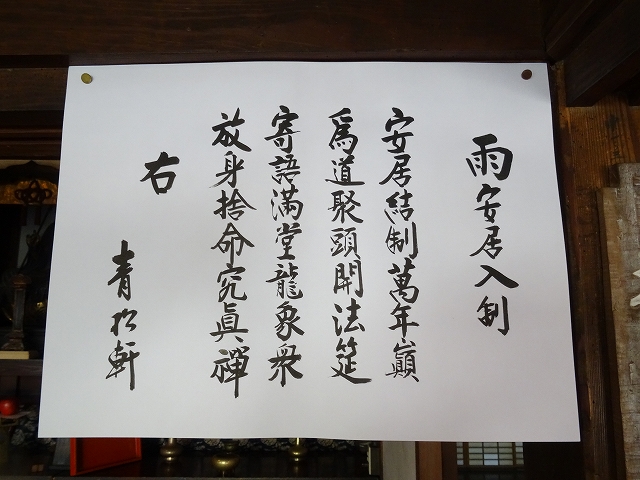 雨安居入制
安居結制萬年巓
爲道聚頭開法筵
寄語滿堂龍象衆
放身捨命究眞禪
右
青松軒